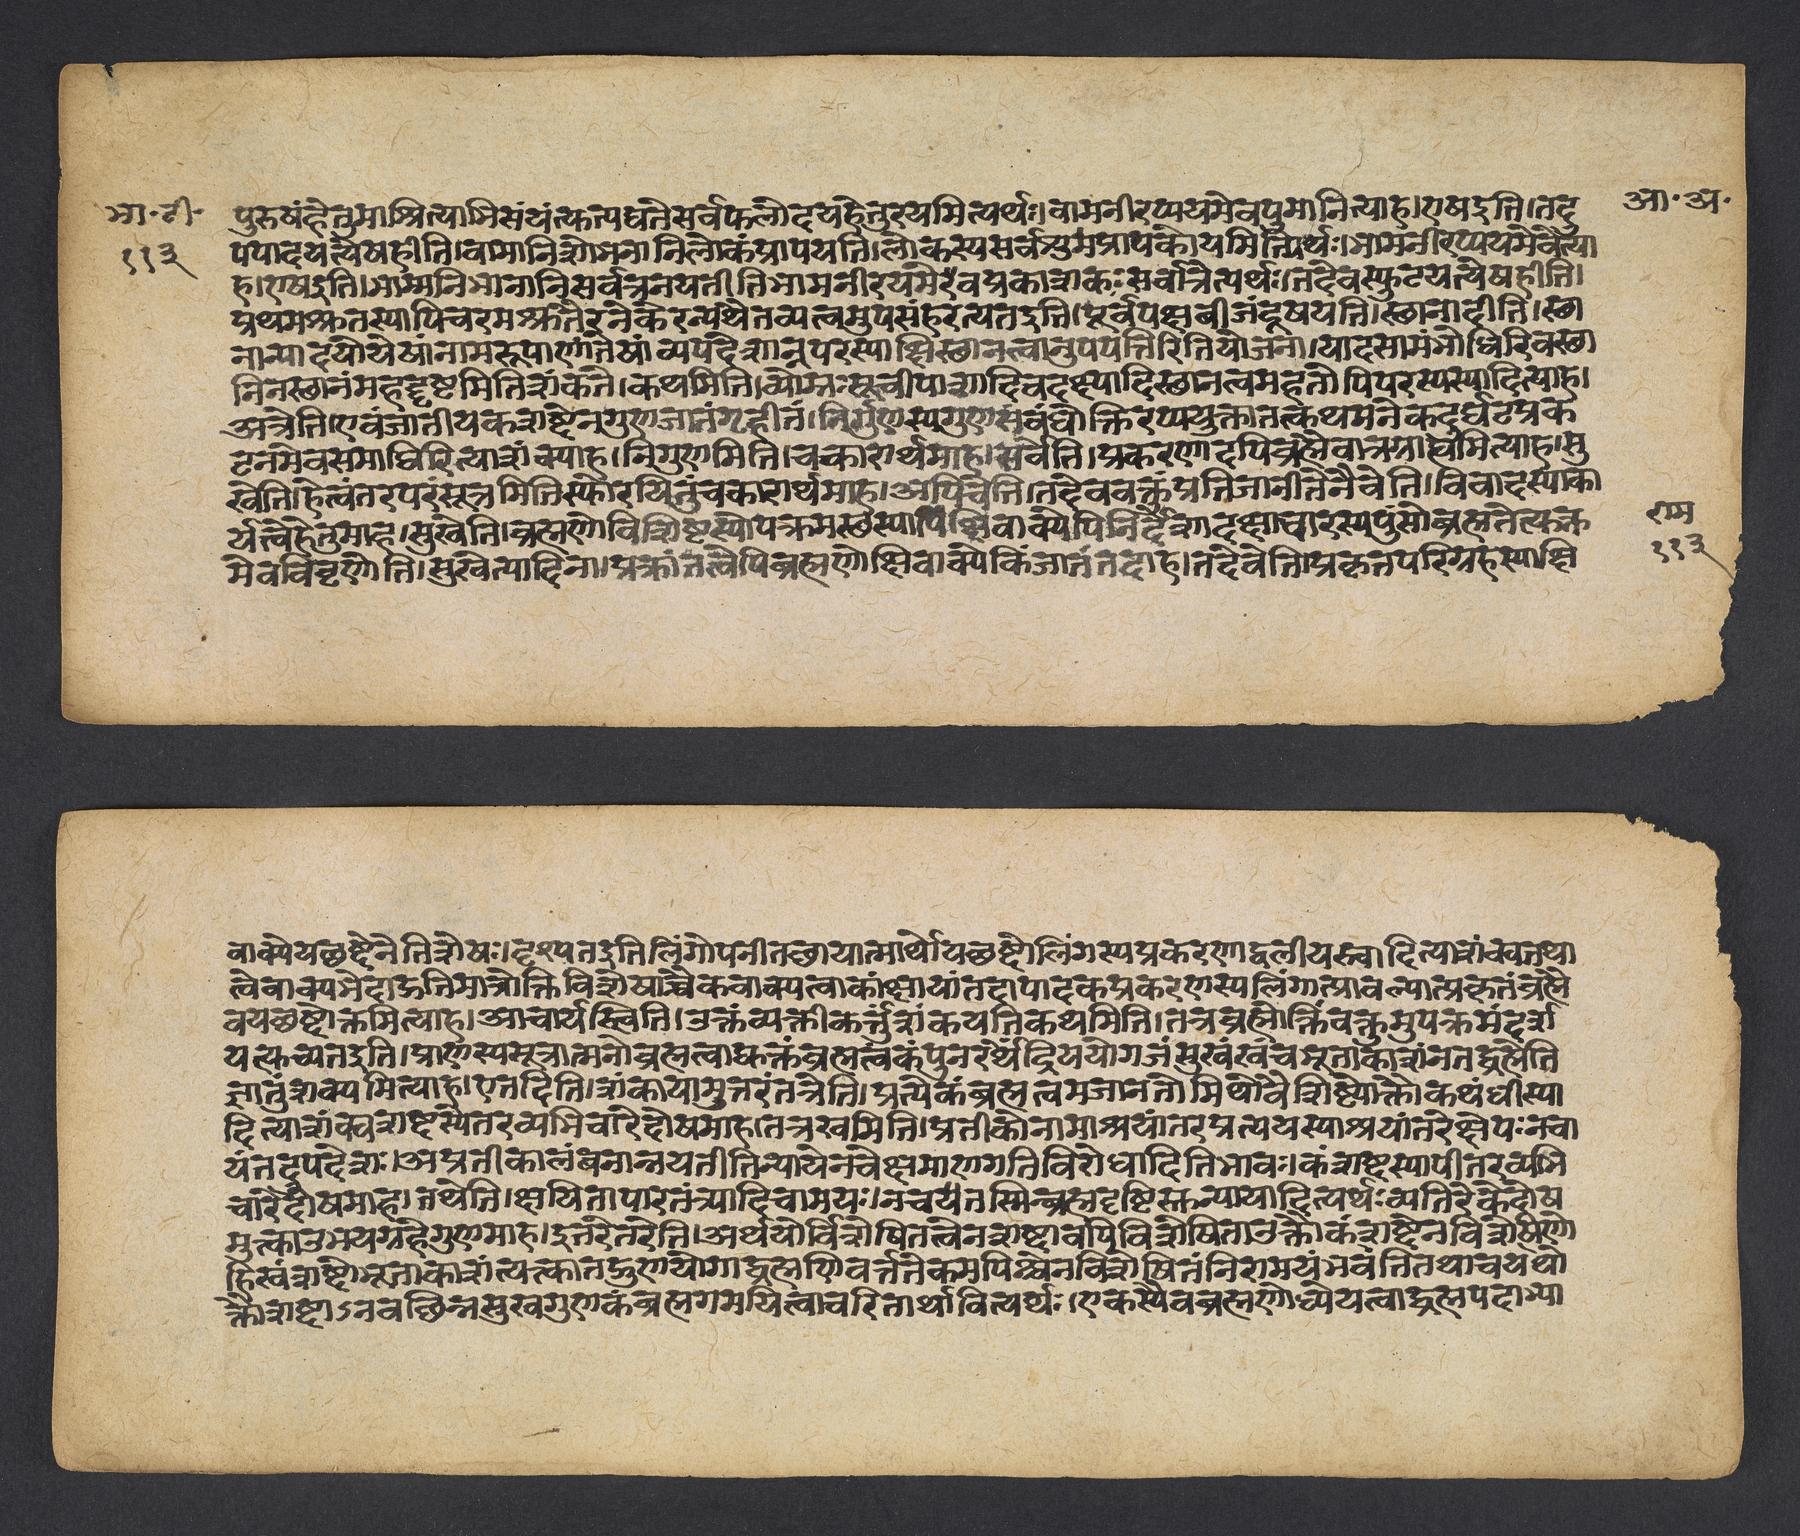 भा॰ टी॰
११३
आ॰ अ॰
पुरुषंहेतुमाश्रित्याभिसंयंत्युत्पद्यंतेसर्वफलोदयहेतुरयमित्यर्थः।वामनीरप्ययमेवपुमानित्याह।एषइति।तदु
पपादयत्येषहीति।वामानिशोभनानिलोकंप्रापयति।लोकस्यसर्वशुभप्रापकोयमित्यर्थः।भामनीरप्ययमेवेत्या
ह।एषइति।भामानिभानानिसर्वत्रनयतीतिभामनीरयमेवप्रकाशकःसर्वात्रेत्यर्थः।तदेवस्फुटयत्येषहीति।
प्रथमश्रुतस्यापिचरमश्रुतैरनेकैरन्यथेतव्यत्वमुपसंहरत्यतइति।पूर्वपक्षबीजंदूषयति।स्थानादीति।स्था
नान्यादयोयेषांनामरूपाणांतेषांव्यपदेशान्नपरस्याक्षिस्थानत्वानुपपत्तिरितियोजना।यादसामंभोधिरिवस्था
निनस्थानंमहद्दृष्टमितिशंकते।कथमिति।व्योम्नःसूचीपाशादिवदक्ष्यादिस्थानत्वमहतोपिपरस्यस्यादित्याह।
अत्रेति।एवंजातीयकशब्देनगुणजातंगृहीतं।निर्गुणस्यगुणसंबंधोक्तिरप्ययुक्तातत्कथमनेकदुर्घटप्रक
टनमेवसमाधिरित्याशंक्याह।निर्गुणमिति।चकारार्थमाह।सर्वेति।प्रकरणादपिब्रह्मैवात्रग्राह्यमित्याह।सु
खेति।हेत्वंतरपरंसूत्रमितिस्फोरयितुंचकारार्थमाह।अपिचेति।तदेववक्तुंप्रतिजानीतेनैवेति।विवादस्याका
र्यत्वेहेतुमाह।सुखेति।ब्रह्मणोविशिष्टस्योपक्रमस्थस्यापिक्षिवाक्येपिनिर्देशादक्ष्याधारस्यपुंसोब्रह्मतेत्युक्त
मेवविवृणोति।सुखेत्यादिना।प्रक्रांतत्वेपिब्रह्मणोक्षिवाक्येकिंजातंतदाह।तदेवेति।प्रकृतपरिग्रहस्याक्षि
राम
११३
वाक्येयच्छब्देनेतिशेषः।दृश्यतइतिलिंगोपनीतछायात्मार्थोयच्छब्दोलिंगस्यप्रकरणाद्बलीयस्त्वादित्याशंक्यतथा
त्वेवाक्यभेदाद्गतिमात्रोक्तिविशेषाच्चैकवाक्यत्वाकांक्षायांतदापादकप्रकरणस्यलिंगात्प्राबल्यात्प्रकृतंब्रह्मै
वयच्छब्दोक्तमित्याह।आचार्यस्त्विति।उक्तंव्यक्तीकर्त्तुंशंकयतिकथमिति।तत्रब्रह्मोक्तिंवक्तुमुपक्रमंदर्श
यत्युच्यतइति।प्राणस्यसूत्रात्मनोब्रह्मत्वाद्युक्तंब्रह्मत्वंकंपुनरर्थेंद्रिययोगजंसुखंखंचभूताकाशंनतद्ब्रह्मेति
ज्ञातुंशक्यमित्याह।एतदिति।शंकायामुत्तरंतत्रेति।प्रत्येकंब्रह्मत्वमजानतोमिथोवैशिष्ट्योक्तौकथंधीस्या
दित्याशंक्यशब्दस्येतरव्यभिचारेदोषमाह।तत्रखमिति।प्रतीकोनामाश्रयांतरप्रत्ययस्याश्रयांतरेक्षेपःनचा
यंतदुपदेशः।अप्रतीकालंबनान्नयतीतिन्यायेनवक्ष्यमाणगतिविरोधादितिभावः।कंशब्दस्यापीतरव्यभि
चारेदोषमाह।तथेति।क्षयितापारतंत्र्यादिचामयः।नचयतस्मिन्ब्रह्मदृष्टिरुक्तन्यायादित्यर्थःव्यतिरेकेदोष
मुक्त्वाउभयग्रहेगुणमाह।इतरेतरेति।अर्थयोर्विशेषितत्वेनशब्दावपिविशेषिताउक्तौकंशब्देनविशेषिणो
हिखंशब्दोभूताकाशंत्यक्त्वातद्गुणयोगाद्ब्रह्मणिवर्त्ततेकमपिखेनविशेषितंनिरामयंभवतितथाचयथो
क्तौशब्दाऽनवच्छिन्नसुखगुणकंब्रह्मगमयित्वाचरितार्थावित्यर्थः।एकस्यैवब्रह्मणोध्येयत्वाद्ब्रह्मपदाभ्या